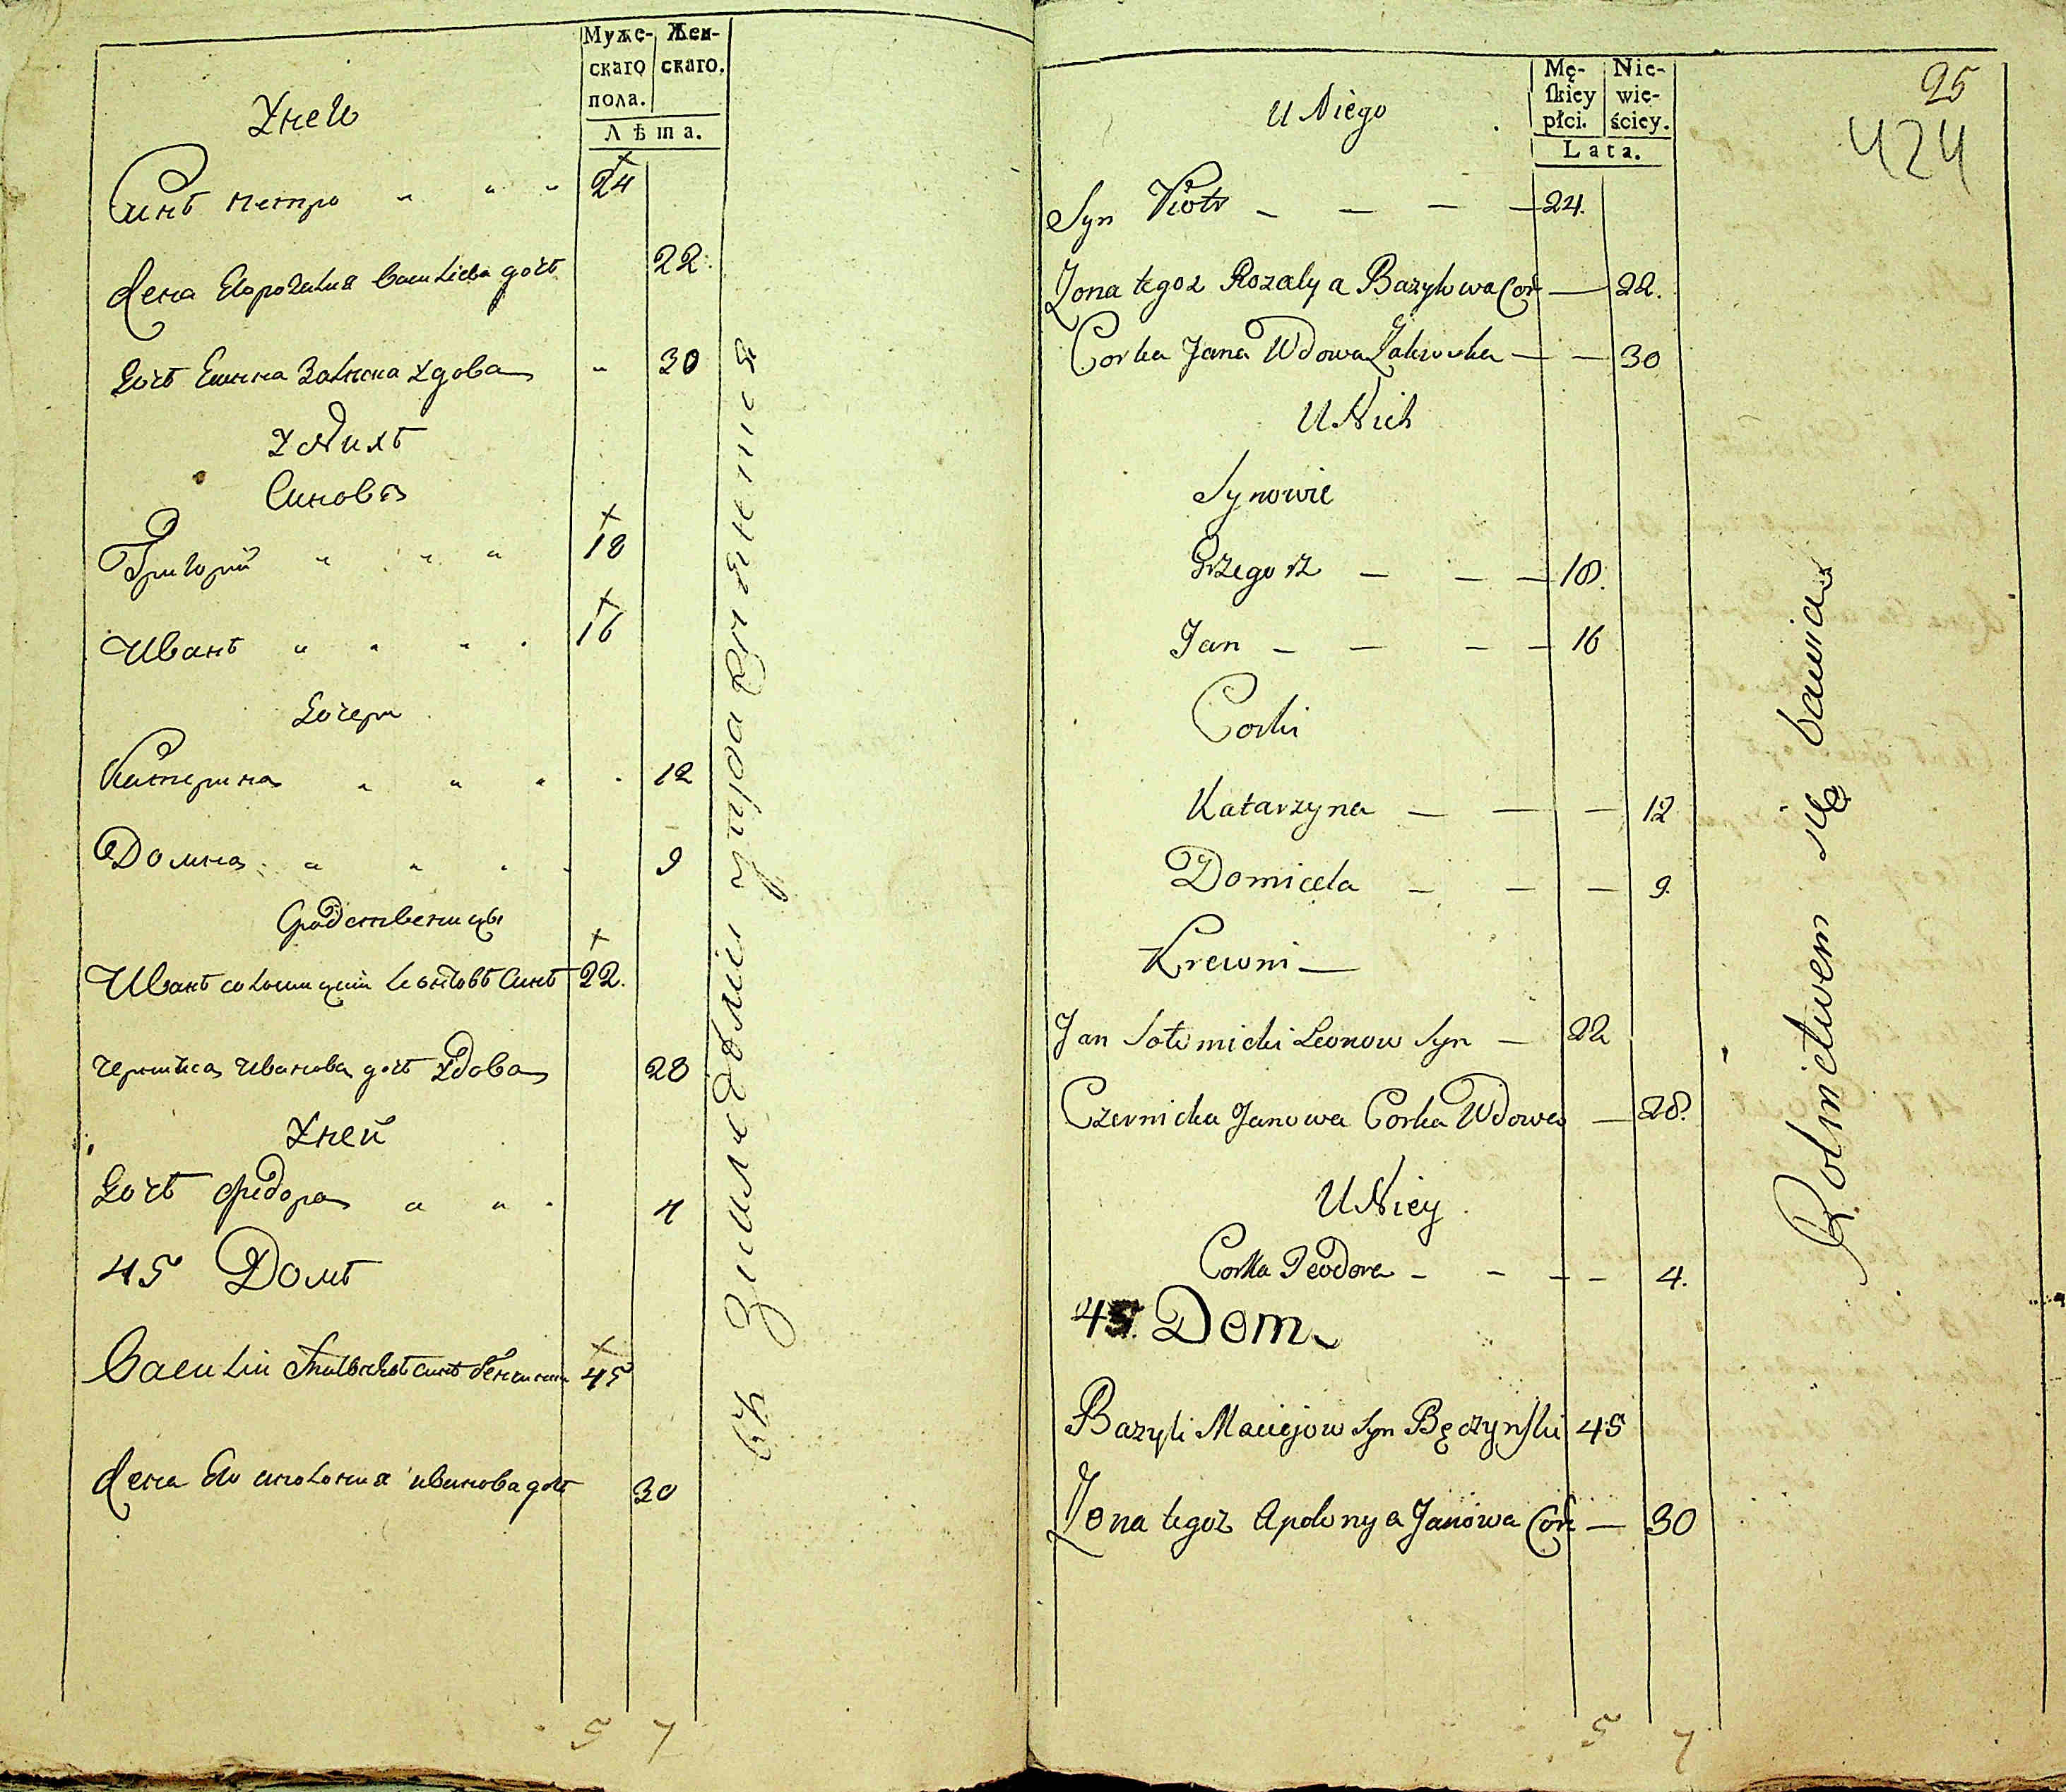 Муже-
скаго
пола.
Жен-
скаго.
Лѣта.
Уней
Синъ петро " " " 24
жена Его розалия василиева дочъ 22.
Дочъ Ешина Залиска Удова " 30
У Нихъ
Синовя
Григорий " " " 18
Иванъ " " " " 16
Дочери
Катерина " " " " 12
Домна " " " " 9
Средственницы
Иванъ соломицкий Леоновъ Синъ 22.
черницка Иванова дочъ Удова 28
Уней
Дочъ Федора " " " 4
45 Домъ
Василий синъ 45
жена Его аполония иванова дочъ 30
5 7
U Niego
Mę-
ſkiey
płci.
Nie-
wie-
ściey.
Lata.
25
424
Syn Piotr — — — — 24.
Żona tegoz Rozalya Bazylowa Cor — 22.
Corka Jana Wdowa — — 30
U Nich
Synowie
Grzegorz — — — 18.
Jan — — — — 16
Corki
Katarzyna — — — 12
Domicela — — — 9.
Krewni —
Jan Sołomicki Leonow Syn — 22
Czernicka Janowa Corka Wdowa — 28.
U Niey
Corka Teodora — — — — 4.
45. Dom
Bazyli Maciejow Syn Bęczyński 45
Żona tegoż Apolonya Janowa Cor — 30
Rolnictwem się bawia
5 7